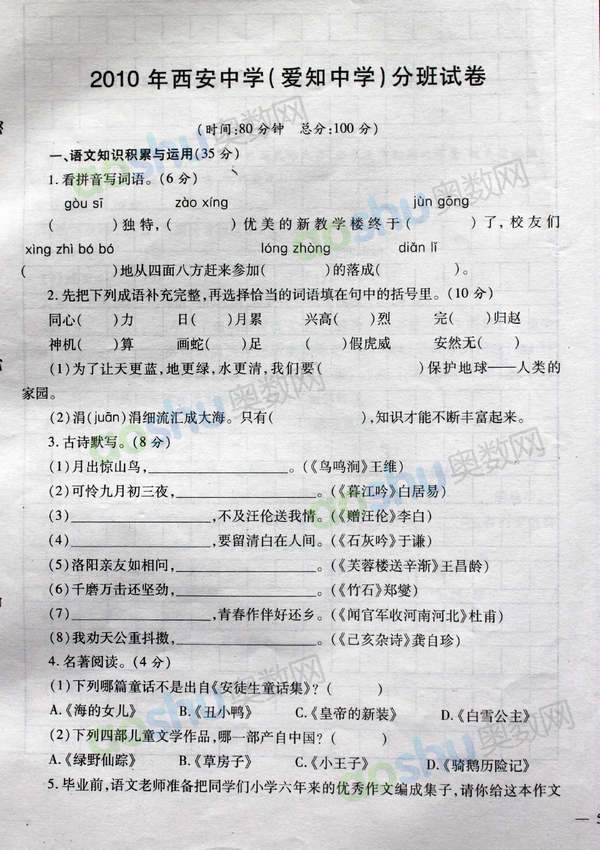 2010 年西安中学(爱知中学)分班试卷
(时间:80 分钟 总分:100 分)
一、语文知识积累与运用(35 分)
1. 看拼音写词语。(6 分)
gòu sī zào xíng jùn gōng
( )独特,( )优美的新教学楼终于( )了,校友们
xìng zhì bó bó lóng zhòng diǎn lǐ
( )地从四面八方赶来参加( )的落成( )。
2. 先把下列成语补充完整,再选择恰当的词语填在句中的括号里。(10 分)
同心( )力 日( )月累 兴高( )烈 完( )归赵
神机( )算 画蛇( )足 ( )假虎威 安然无( )
(1)为了让天更蓝,地更绿,水更清,我们要( )保护地球——人类的
家园。
(2)涓(juān)涓细流汇成大海。只有( ),知识才能不断丰富起来。
3. 古诗默写。(8 分)
(1)月出惊山鸟,____________。(《鸟鸣涧》王维)
(2)可怜九月初三夜,____________。(《暮江吟》白居易)
(3)____________,不及汪伦送我情。(《赠汪伦》李白)
(4)____________,要留清白在人间。(《石灰吟》于谦)
(5)洛阳亲友如相问,____________。(《芙蓉楼送辛渐》王昌龄)
(6)千磨万击还坚劲,____________。(《竹石》郑燮)
(7)____________,青春作伴好还乡。(《闻官军收河南河北》杜甫)
(8)我劝天公重抖擞,____________。(《己亥杂诗》龚自珍)
4. 名著阅读。(4 分)
(1)下列哪篇童话不是出自《安徒生童话集》? ( )
A.《海的女儿》 B.《丑小鸭》 C.《皇帝的新装》 D.《白雪公主》
(2)下列四部儿童文学作品,哪一部产自中国? ( )
A.《绿野仙踪》 B.《草房子》 C.《小王子》 D.《骑鹅历险记》
5. 毕业前,语文老师准备把同学们小学六年来的优秀作文编成集子,请你给这本作文
aoshu奥数网
aoshu奥数网
aoshu奥数网
aoshu奥数网